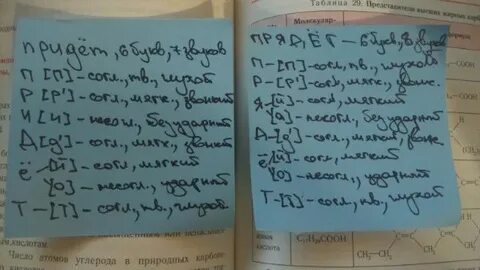 Таблица 29. Представители высших жирных карбо
Молекуляр-
придёт, 6 букв, 7 звуков
П [П] - согл., тв., глухой
Р [Р'] - согл., мягк., звонкий
И [И] - несогл., безударный
Д [д'] - согл., мягк., звонкий
Ё [й] - согл., мягкий
[о] - несогл., ударный
Т - [Т] - согл., тв., глухой.
ПРЯДЁТ - 6 букв, 8 звуков
П - [П] - согл., тв., глухой
Р - [Р'] - согл., мягк., звонк.
Я - [й] - согл., мягкий
[а] - несогл., безударный
Д - [д'] - согл., мягкий, звонк.
ё [й] - согл., мягкий
[о] - несогл., ударный
Т - [Т] - согл., тв., глухой
COOH
кислота
CH₂—CH₂
Число атомов углерода в природных карбо-